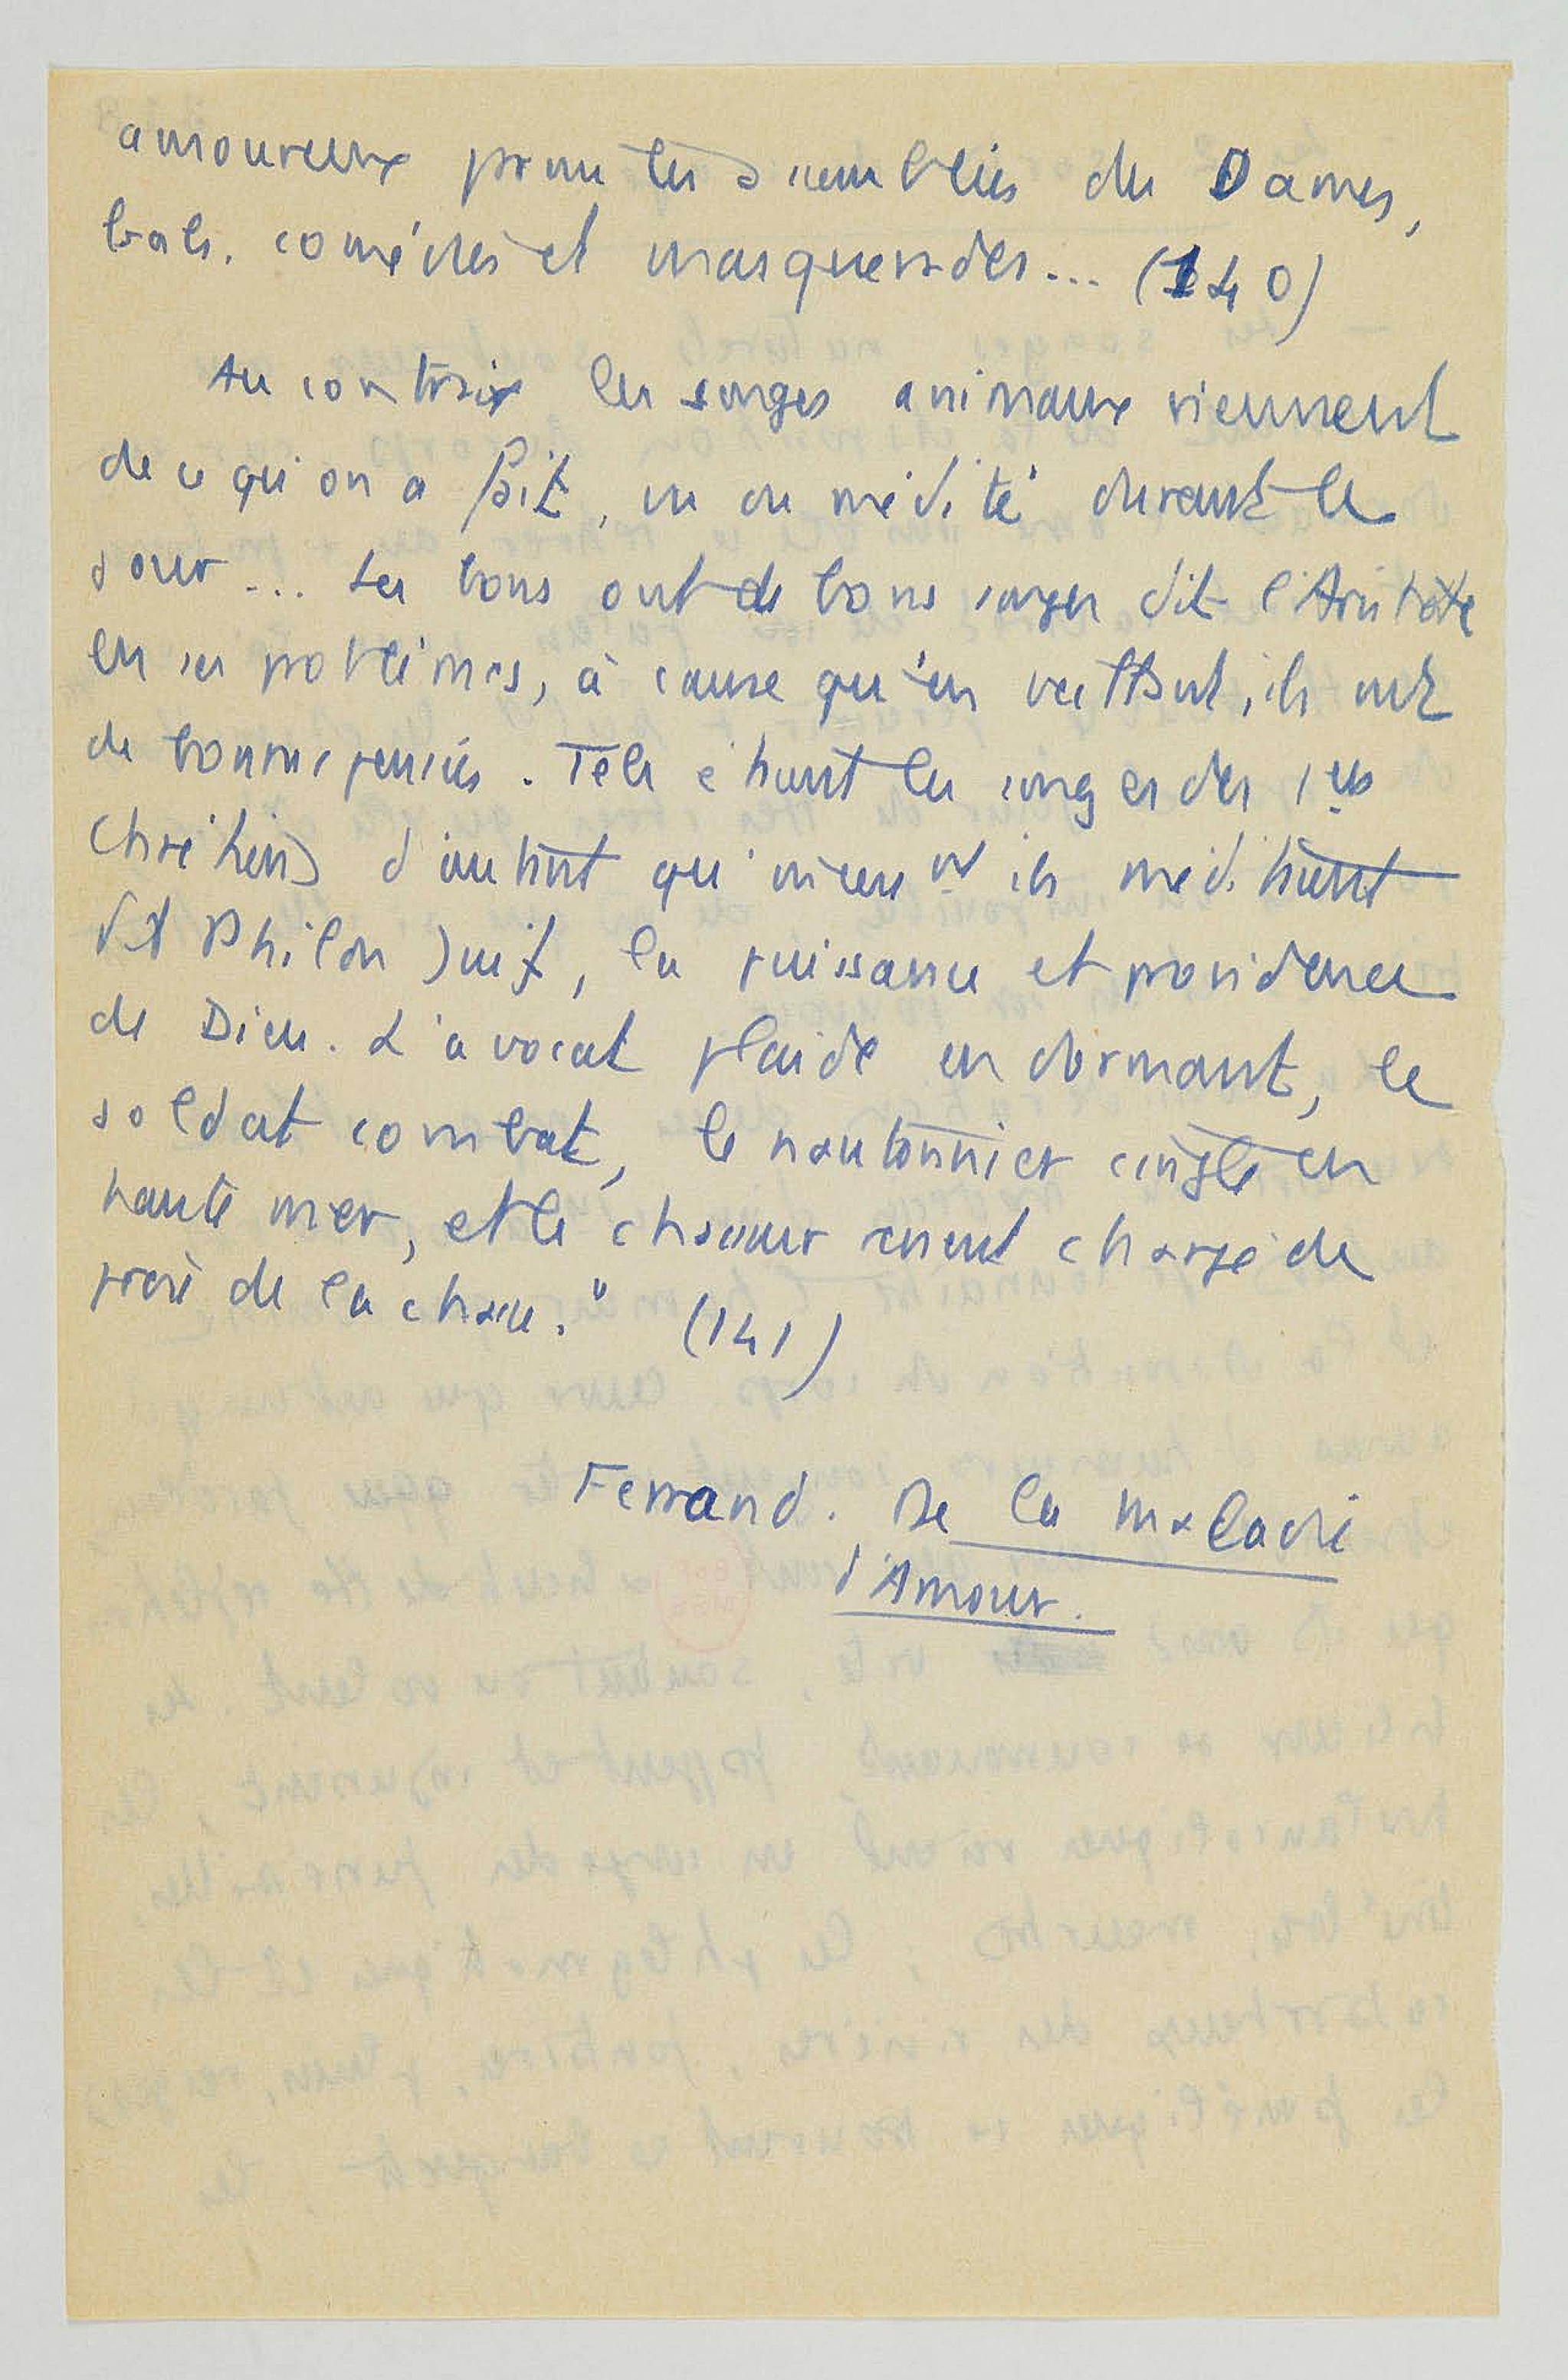 amoureux parmi les assemblées des Dames,
bals, comédies et masquerades... (140)
Au contraire les songes animaux viennent
de ce qu'on a fait, vu ou médité durant le
jour... Les bons ont de bons songes dit l'Aristote
en ses problèmes, à cause qu'en veillant, ils ont
de bonnes pensées. Tels étaient les songes des 1ers
Chrétiens d'autant qu' ils méditaient
dit Philon Juif, la puissance et providence
de Dieu. L'avocat plaide en dormant, le
soldat combat, le nautonnier cingle en
haute mer, et le chasseur revient chargé de
proie de la chasse." (141)
Ferrand. De la maladie
d'Amour.